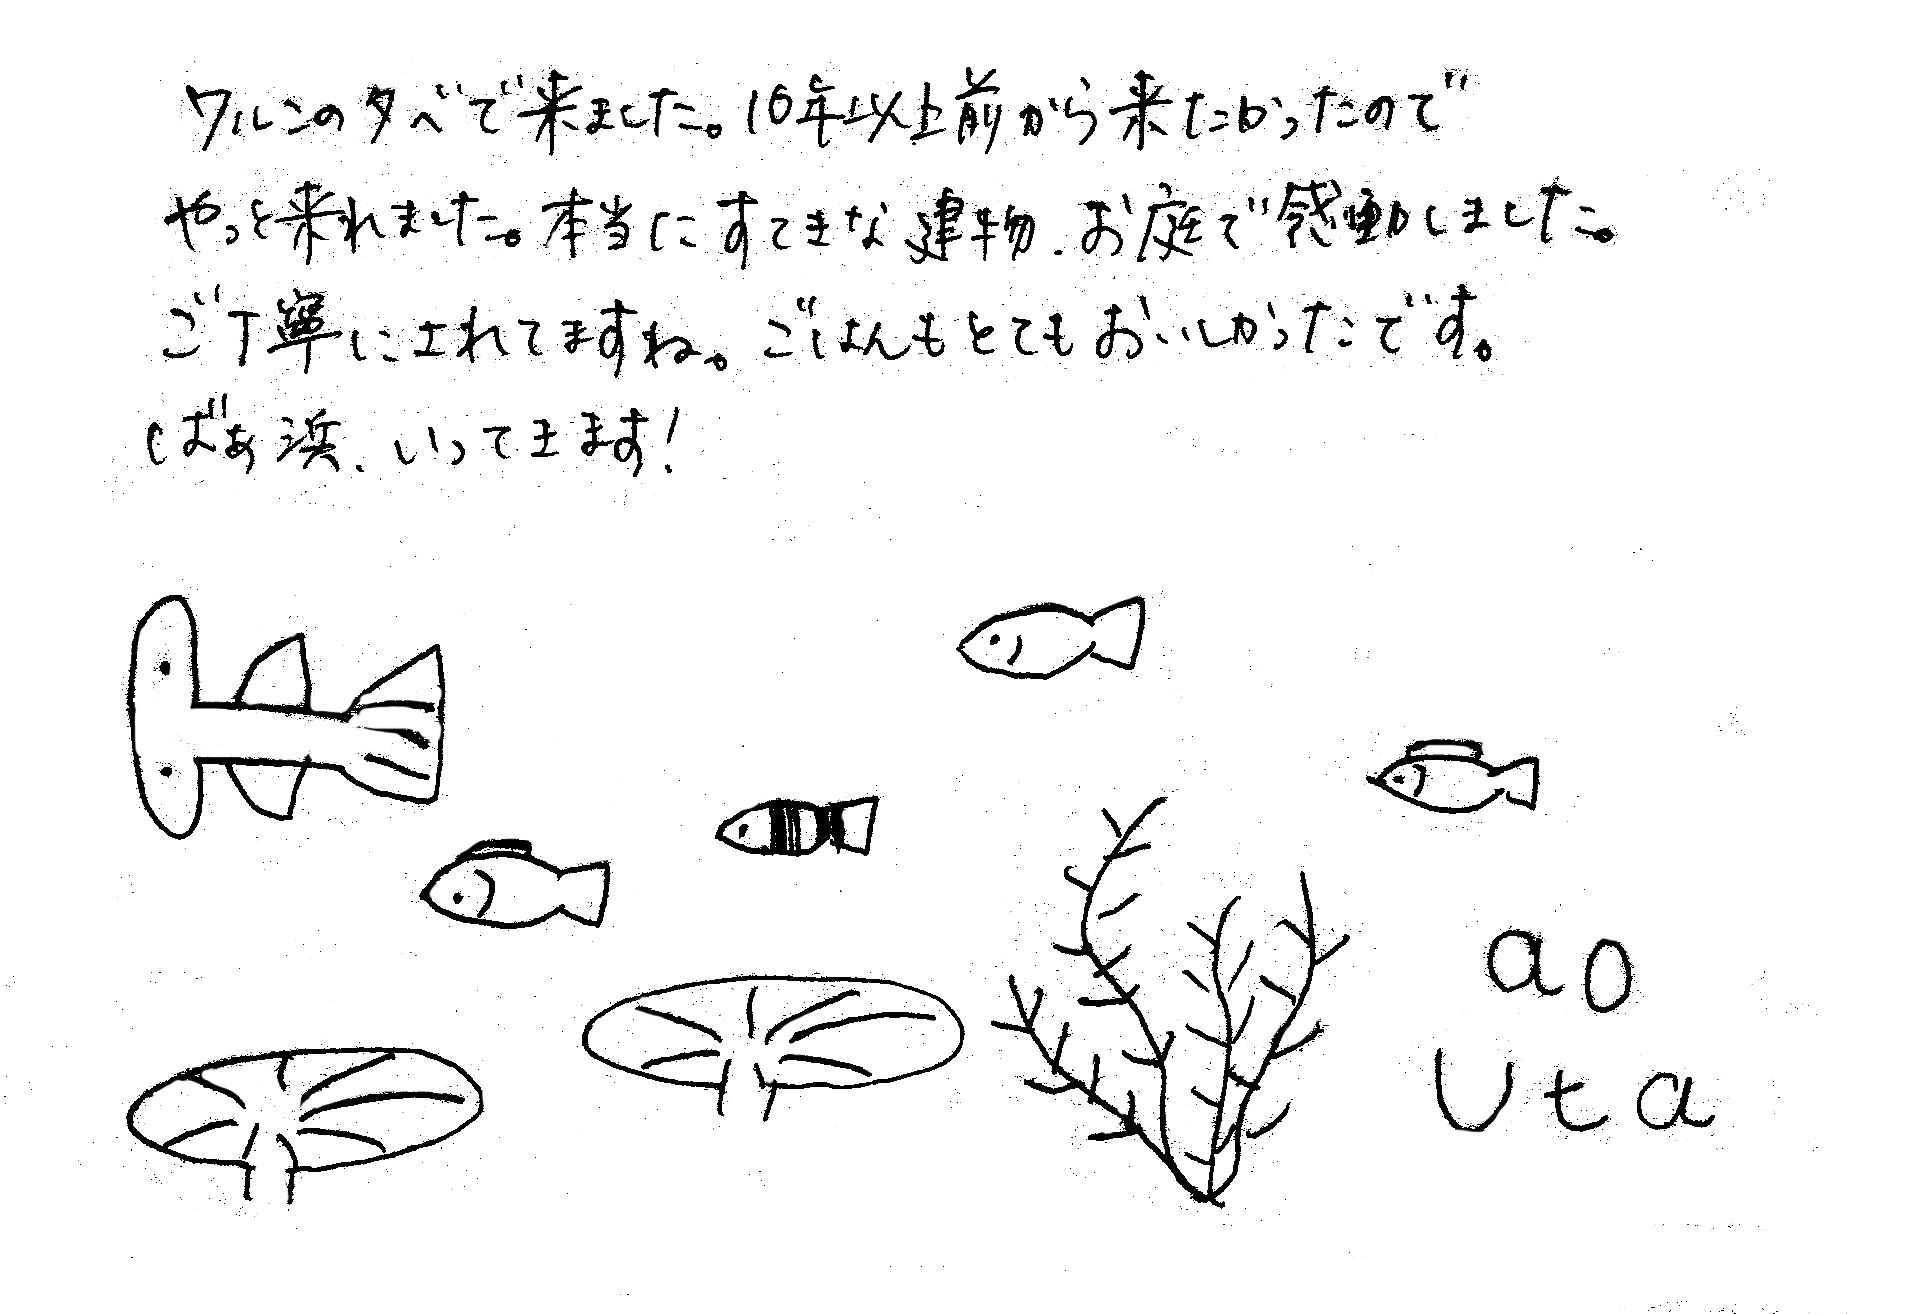 ワルンの夕べで来ました。10年以上前から来たかったので
やっと来れました。本当にすてきな建物、お庭で感動しました。
ご丁寧にされてますね。ごはんもとてもおいしかったです。
じばあ浜、いってきます!
ao
uta